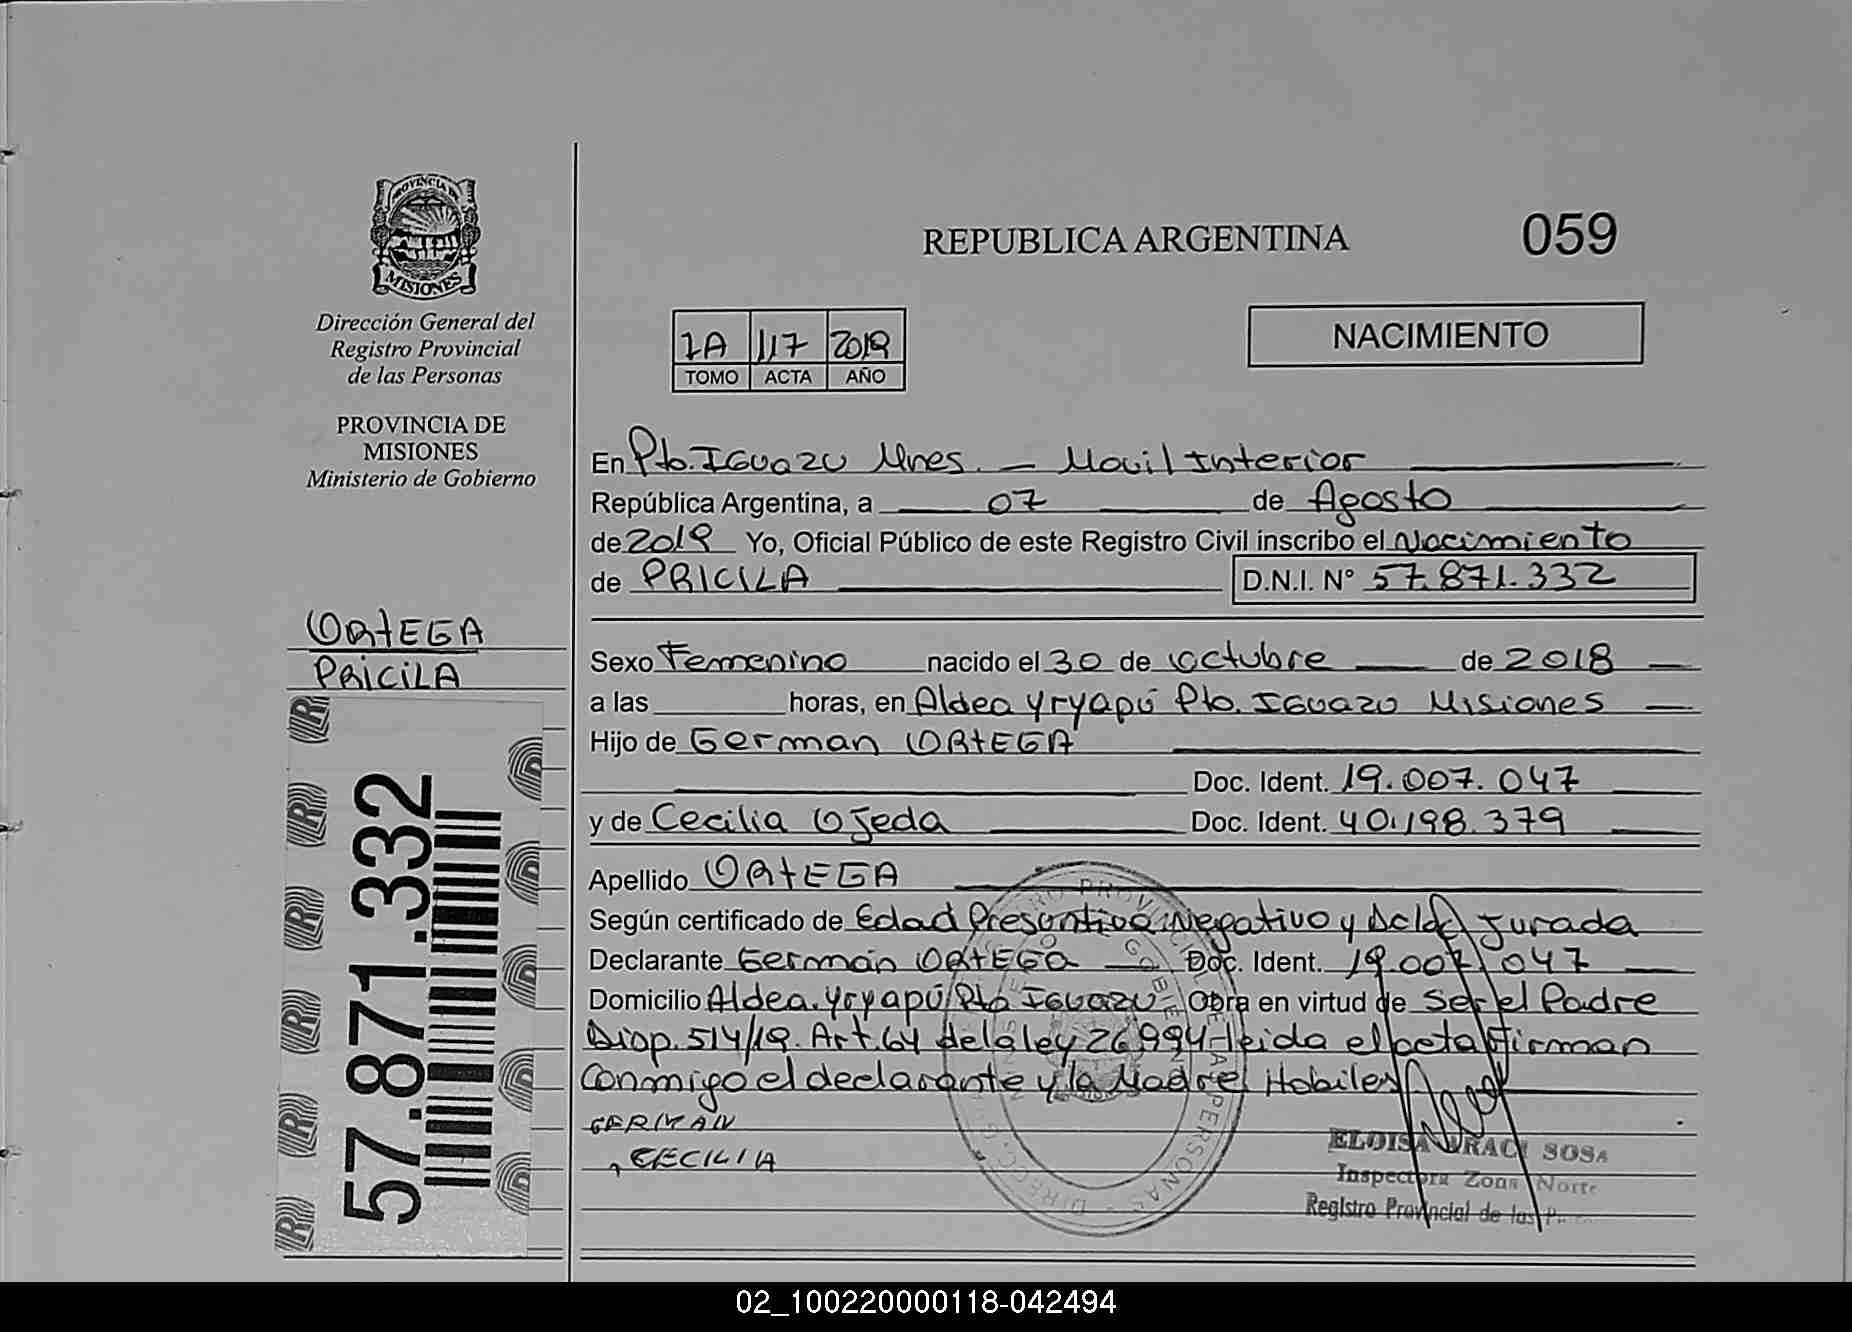 PROVINCIA DE
MISIONES
Dirección General del
Registro Provincial
de las Personas
PROVINCIA DE
MISIONES
Ministerio de Gobierno
ORTEGA
PRICILA
57.871.332
REPUBLICA ARGENTINA
059
1A 117 2019
TOMO ACTA AÑO
NACIMIENTO
En Pto. IGUAZU Mnes. — Movil Interior
República Argentina, a 07 de Agosto
de 2019 Yo, Oficial Público de este Registro Civil inscribo el Nacimiento
de PRICILA D.N.I. N° 57.871.332
Sexo Femenino nacido el 30 de octubre de 2018
a las horas, en Aldea Yryapú Pto. IGUAZU MISIONES
Hijo de German ORTEGA
Doc. Ident. 19.007.047
y de Cecilia OJeda Doc. Ident. 40.198.379
Apellido ORTEGA
Según certificado de Edad Presuntiva, Negativo y Dclda Jurada
Declarante Germán ORTEGA Doc. Ident. 19.007.047
Domicilio Aldea Yryapú Pto IGUAZU Obra en virtud de Ser el Padre
Disp. 514/19. Art. 64 de la ley 26994 leida el acta Firman
Conmigo el declarante y la Madre Habiles
GERMAN
CECILIA
ELOISA IRACI SOSA
Inspectora Zona Norte
Registro Provincial de las
02_100220000118-042494